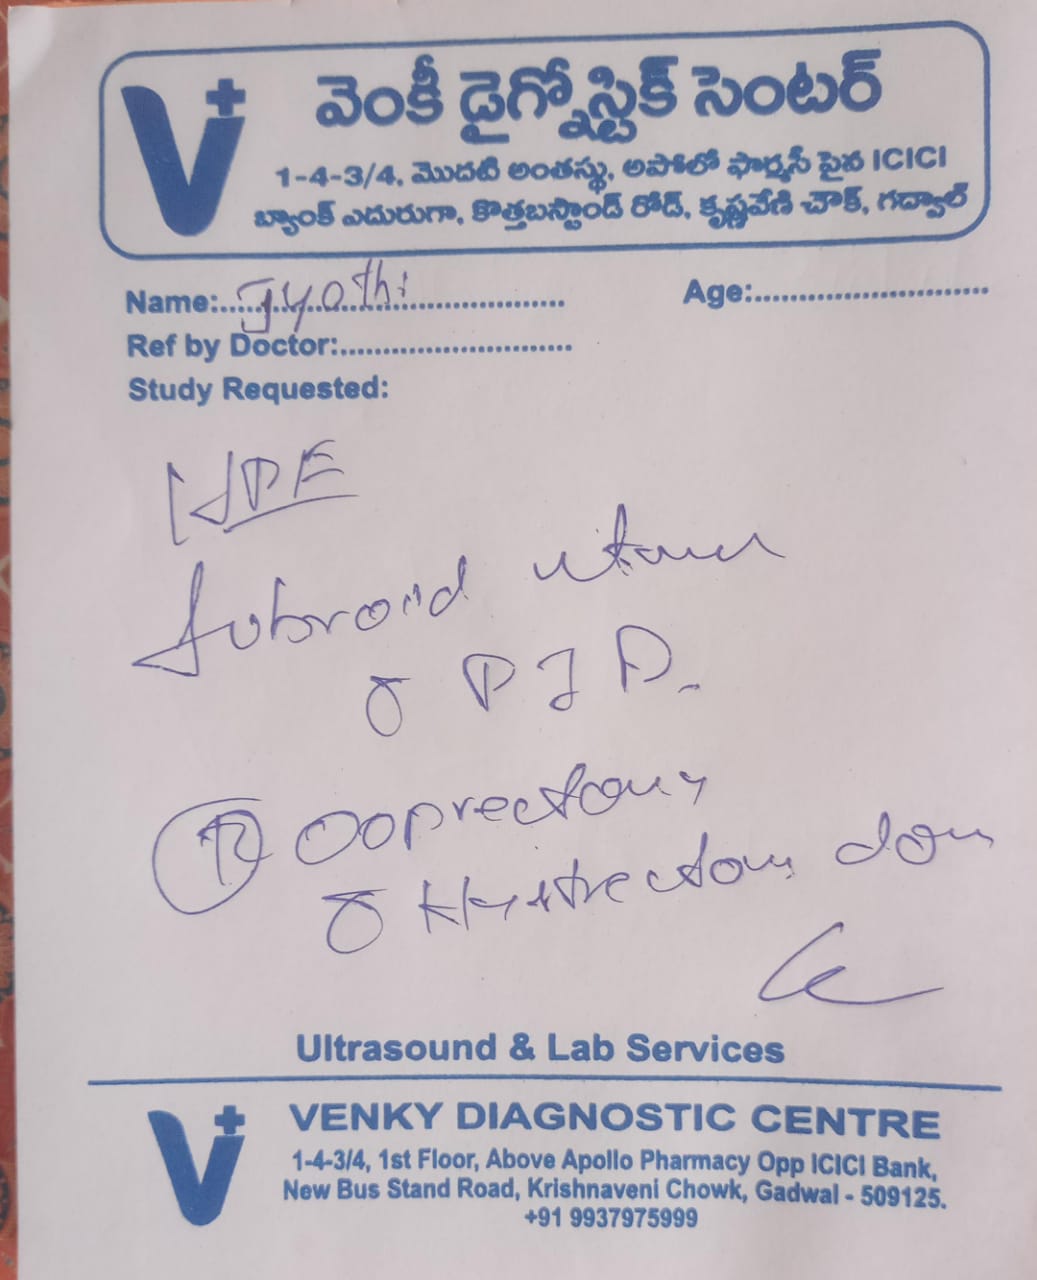 వెంకీ డైగ్నోస్టిక్ సెంటర్
1-4-3/4, మొదటి అంతస్థు, అపోలో ఫార్మసీ పైన ICICI
బ్యాంక్ ఎదురుగా, కొత్తబస్టాండ్ రోడ్, కృష్ణవేణి చౌక్, గద్వాల్
Name:.....Jyothi.....................
Age:..........................
Ref by Doctor:..........................
Study Requested:
HPE
fubroid uterus
c̄ PID.
(R) ooprectomy
c̄ Hysterectomy done
Ultrasound & Lab Services
VENKY DIAGNOSTIC CENTRE
1-4-3/4, 1st Floor, Above Apollo Pharmacy Opp ICICI Bank,
New Bus Stand Road, Krishnaveni Chowk, Gadwal - 509125.
+91 9937975999